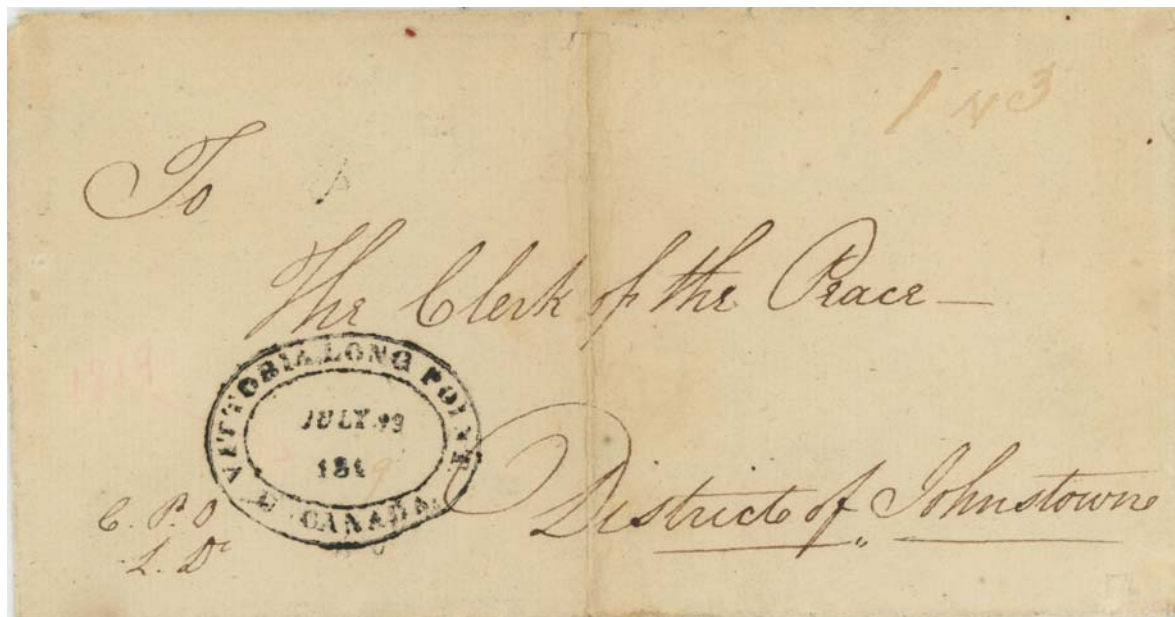 1 N 3
To
The Clerk of the Peace —
VITTORIA, LONG POINT
JULY 29
181 9
U. CANADA.
District of Johnstown
C. P. O
L. Dr
1819